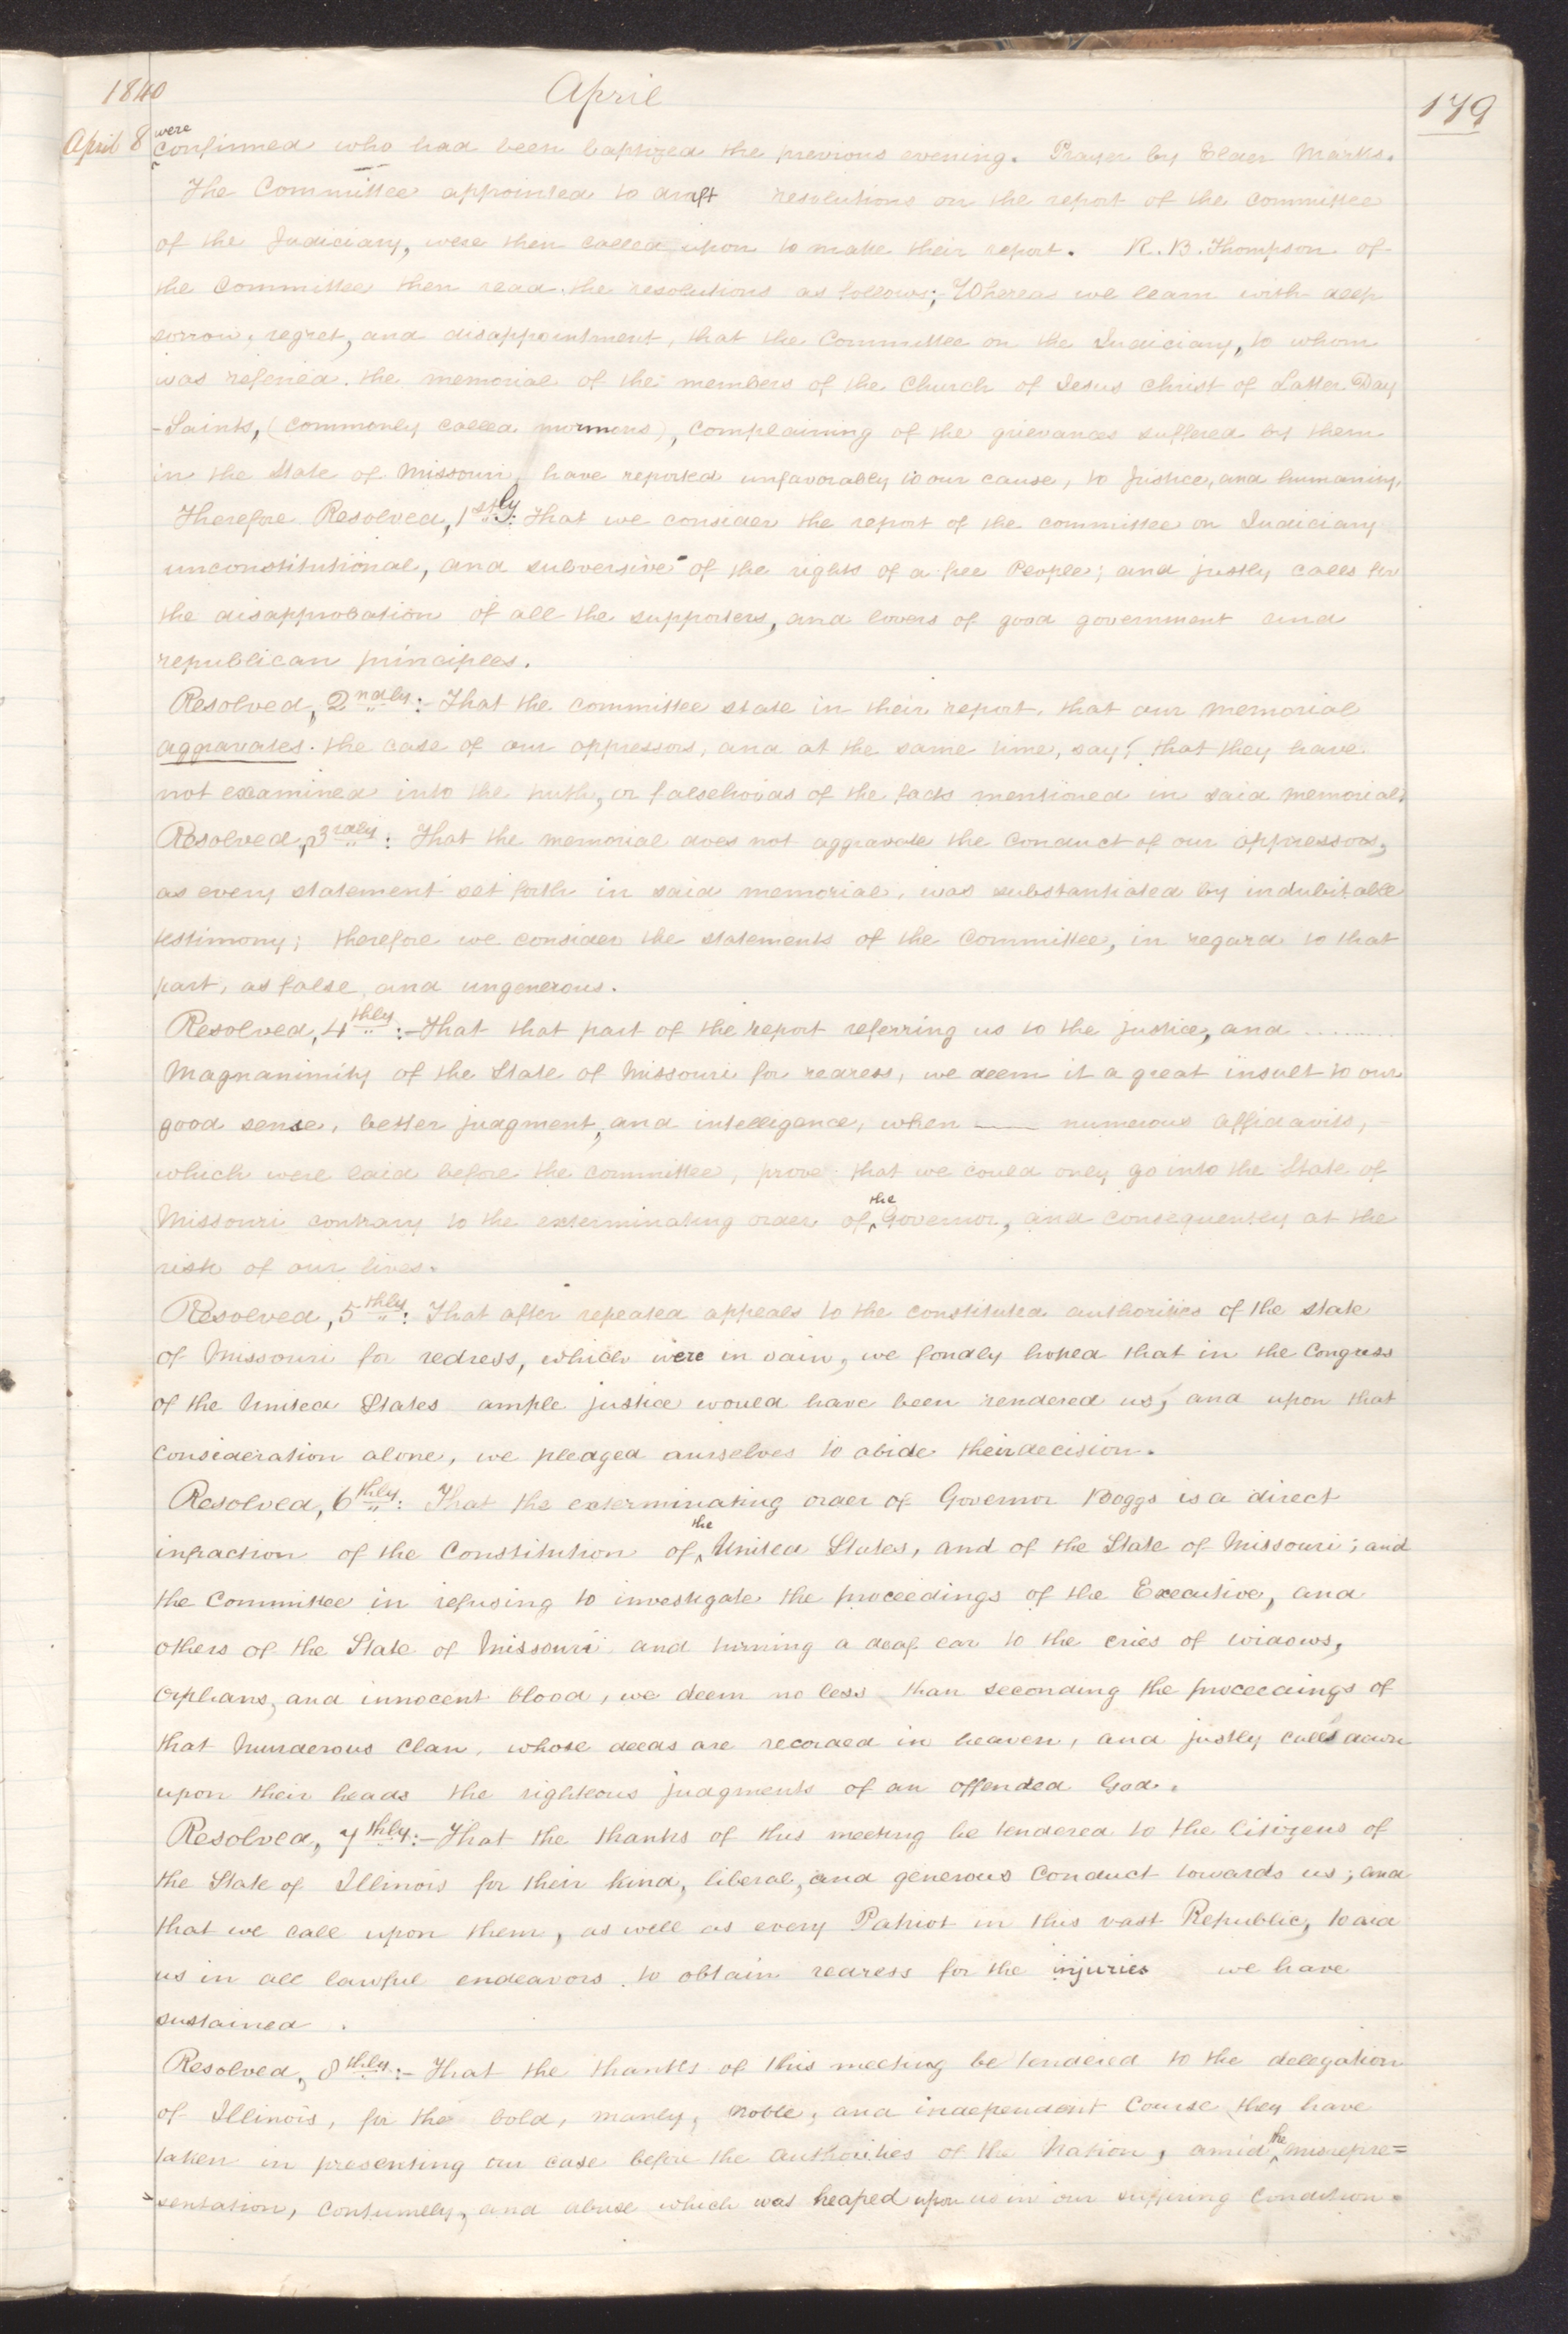 1840 April 179
April 8 were
confirmed who had been baptized the previous evening. Prayer by Elder Marks.
The Committee appointed to draft resolutions on the report of the committee
of the Judiciary, were then called upon to make their report. R. B. Thompson of
the Committee then read the resolutions as follows;- Whereas we learn with deep
sorrow, regret, and disappointment, that the Committee on the Judiciary, to whom
was referred the memorial of the members of the Church of Jesus Christ of Latter Day
-Saints, (commonly called mormons), complaining of the grievances suffered by them
in the State of Missouri, have reported unfavorably to our cause, to Justice, and humanity.
Therefore Resolved, 1stly: That we consider the report of the committee on Judiciary
unconstitutional, and subversive of the rights of a free People; and justly calls for
the disapprobation of all the supporters, and lovers of good government and
republican principles.
Resolved, 2ndly:- That the committee state in their report, that our memorial
aggravates the case of our oppressors, and at the same time, say, that they have
not examined into the truth, or falsehoods of the facts mentioned in said memorial.
Resolved, 3rdly: That the memorial does not aggravate the conduct of our oppressors,
as every statement set forth in said memorial, was substantiated by indubitable
testimony; therefore we consider the statements of the committee, in regard to that
part, as false and ungenerous.
Resolved, 4thly:- That that part of the report referring us to the justice, and ........
Magnanimity of the State of Missouri for redress, we deem it a great insult to our
good sense, better judgment, and intelligence, when —— numerous affidavits, -
which were laid before the committee, prove that we could only go into the State of
the
Missouri contrary to the exterminating order of ^ Governor, and consequently at the
risk of our lives.
Resolved, 5thly: That after repeated appeals to the constituted authorities of the state
of Missouri for redress, which were in vain, we fondly hoped that in the Congress
of the United States ample justice would have been rendered us; and upon that
consideration alone, we pledged ourselves to abide their decision.
Resolved, 6thly: That the exterminating order of Governor Boggs is a direct
the
infraction of the Constitution of ^ United States, and of the State of Missouri; and
the Committee in refusing to investigate the proceedings of the Executive, and
others of the State of Missouri and turning a deaf ear to the cries of widows,
orphans, and innocent blood, we deem no less than seconding the proceedings of
that Murderous Clan, whose deeds are recorded in heaven, and justly calls down
upon their heads the righteous judgments of an offended God.
Resolved, 7thly:- That the thanks of this meeting be tendered to the Citizens of
the State of Illinois for their kind, liberal, and generous conduct towards us; and
that we call upon them, as well as every Patriot in this vast Republic, to aid
us in all lawful endeavors to obtain redress for the injuries we have
sustained.
Resolved, 8thly:- That the thanks of this meeting be tendered to the delegation
of Illinois, for the bold, manly, noble, and independent Course they have
the
taken in presenting our case before the authorities of the Nation, amid ^ misrepre=
=sentation, contumely, and abuse which was heaped upon us in our suffering condition.